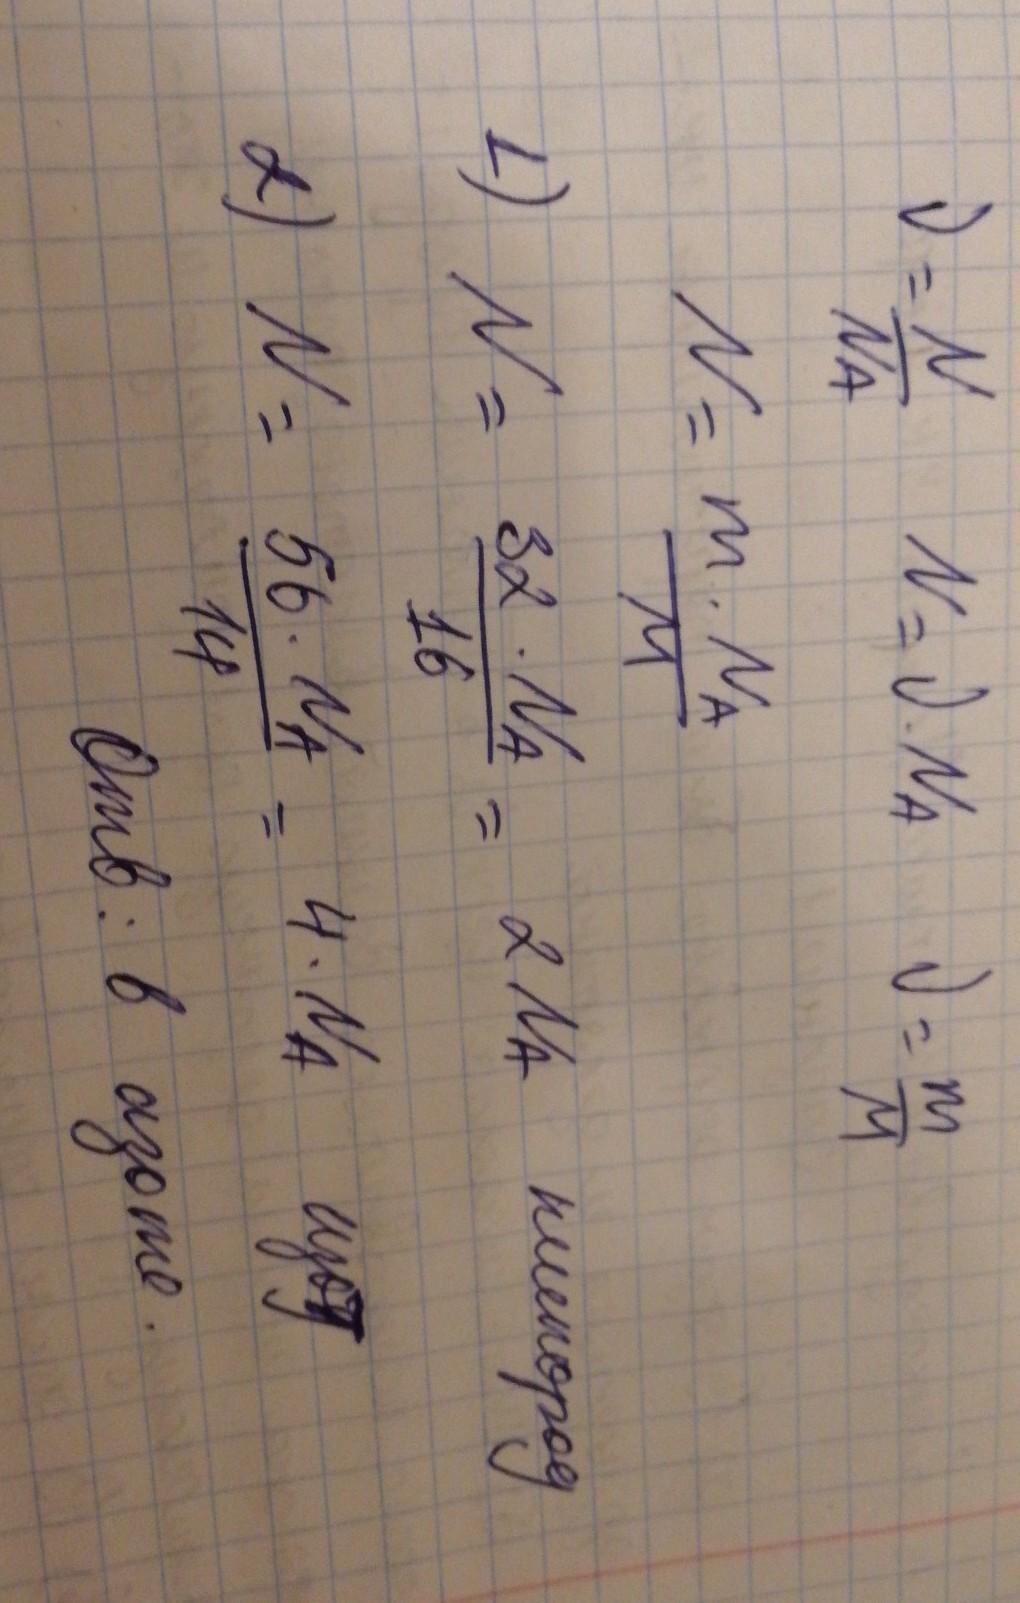 ν = N/N_A N = ν · N_A ν = m/M
N = m · N_A/M
1) N = 32 · N_A/16 = 2 N_A кислород
2) N = 56 · N_A/14 = 4 · N_A азот
Отв: в азоте.